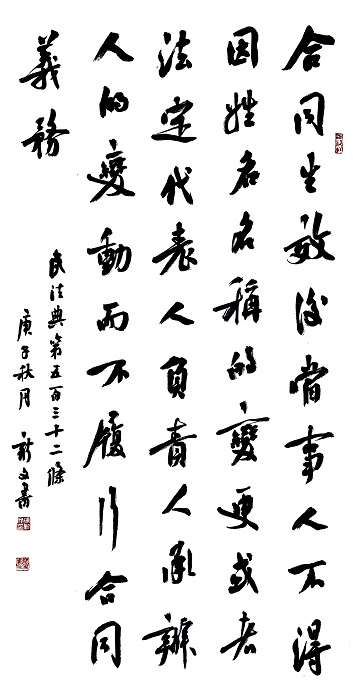 合同生效後當事人不得
因姓名名稱的變更或者
法定代表人負責人承辦
人的變動而不履行合同
義務
民法典第五百三十二條
庚子秋月